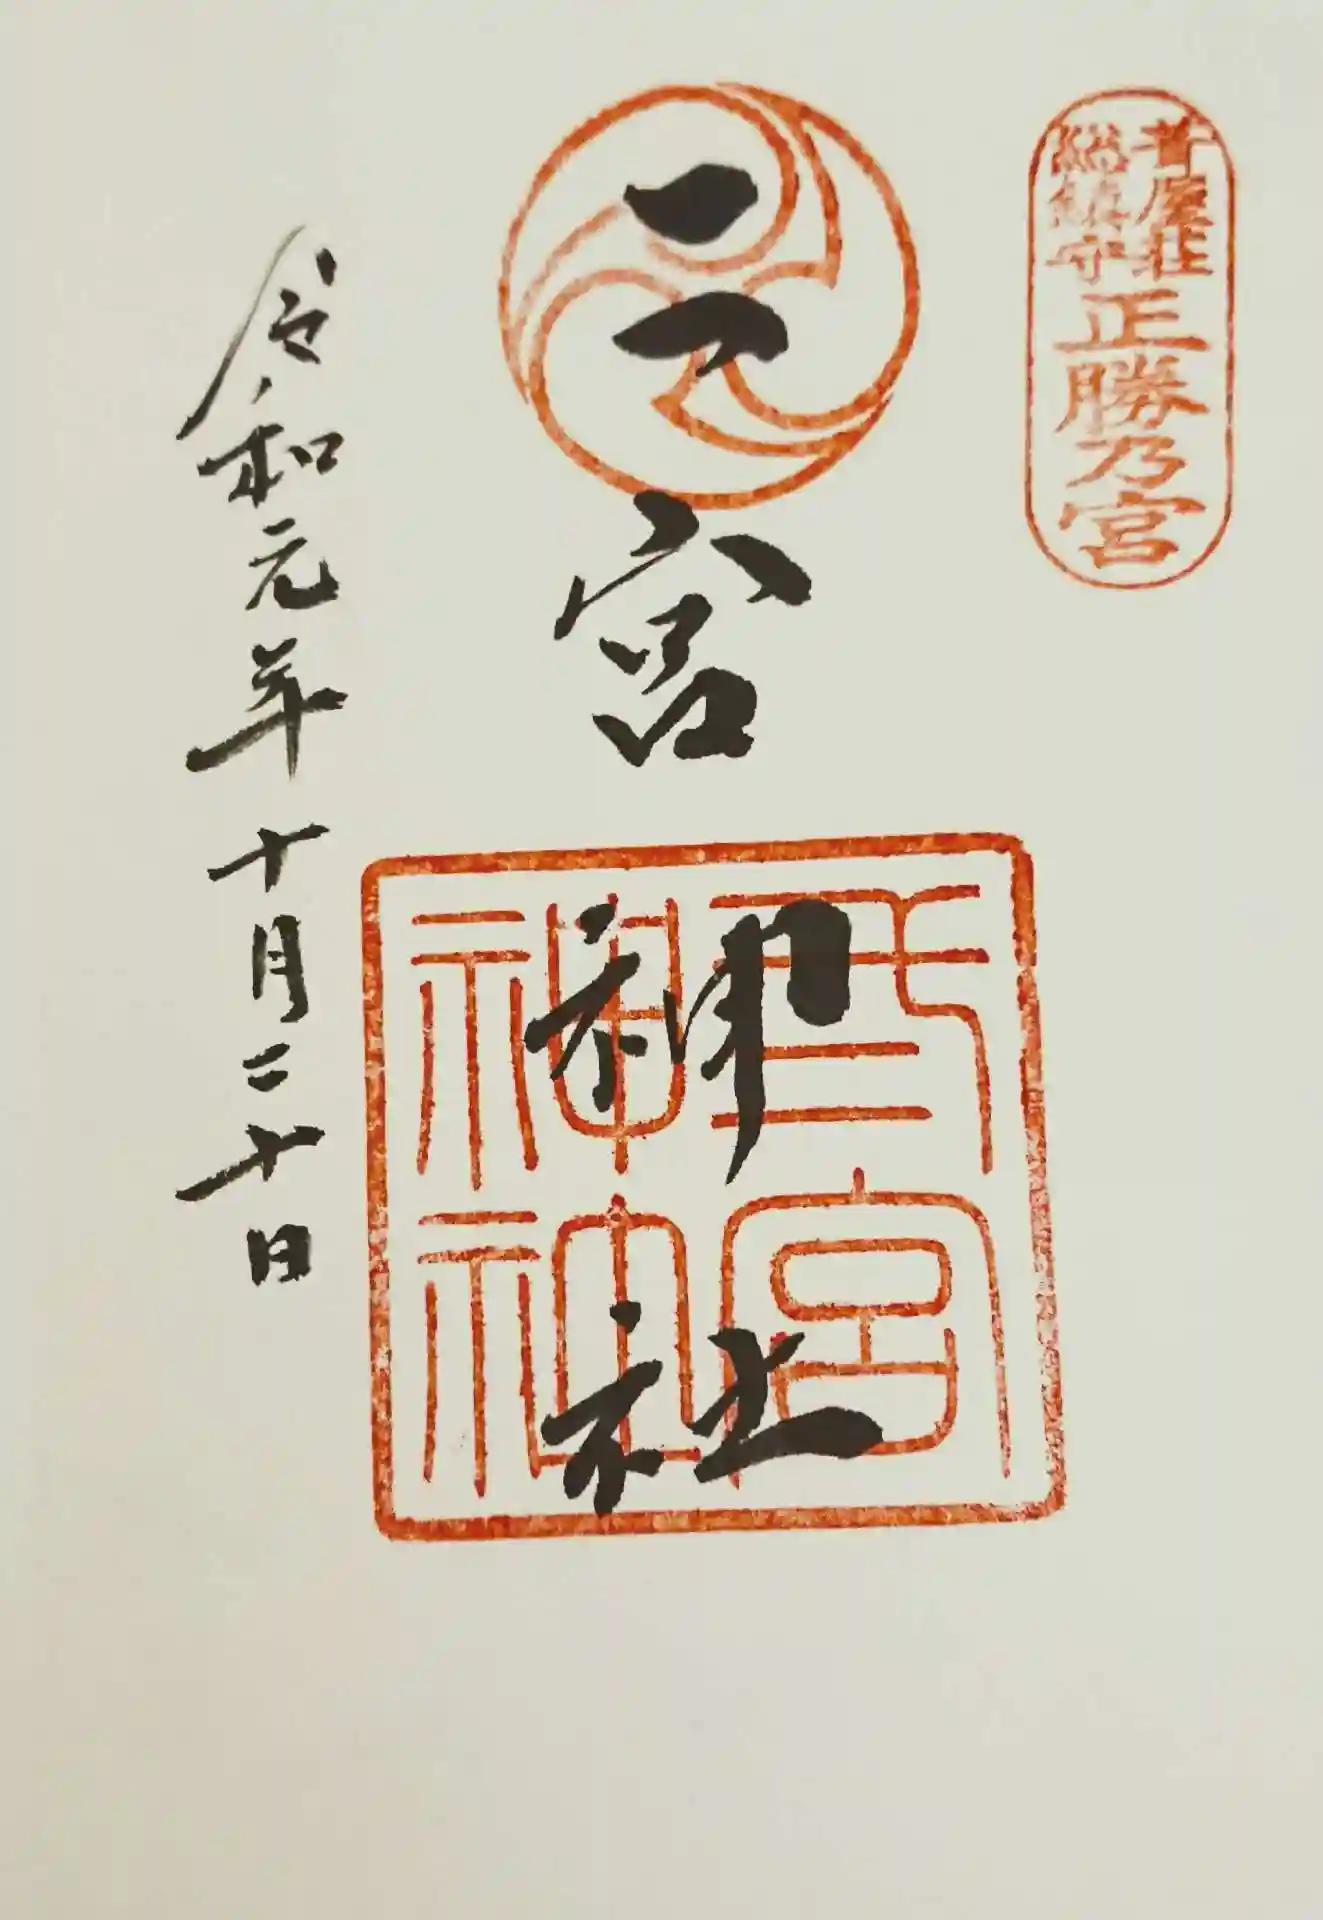 葺屋荘
総鎮守
正勝乃宮
二宮神社
弍宮
神社
令和元年十月二十日